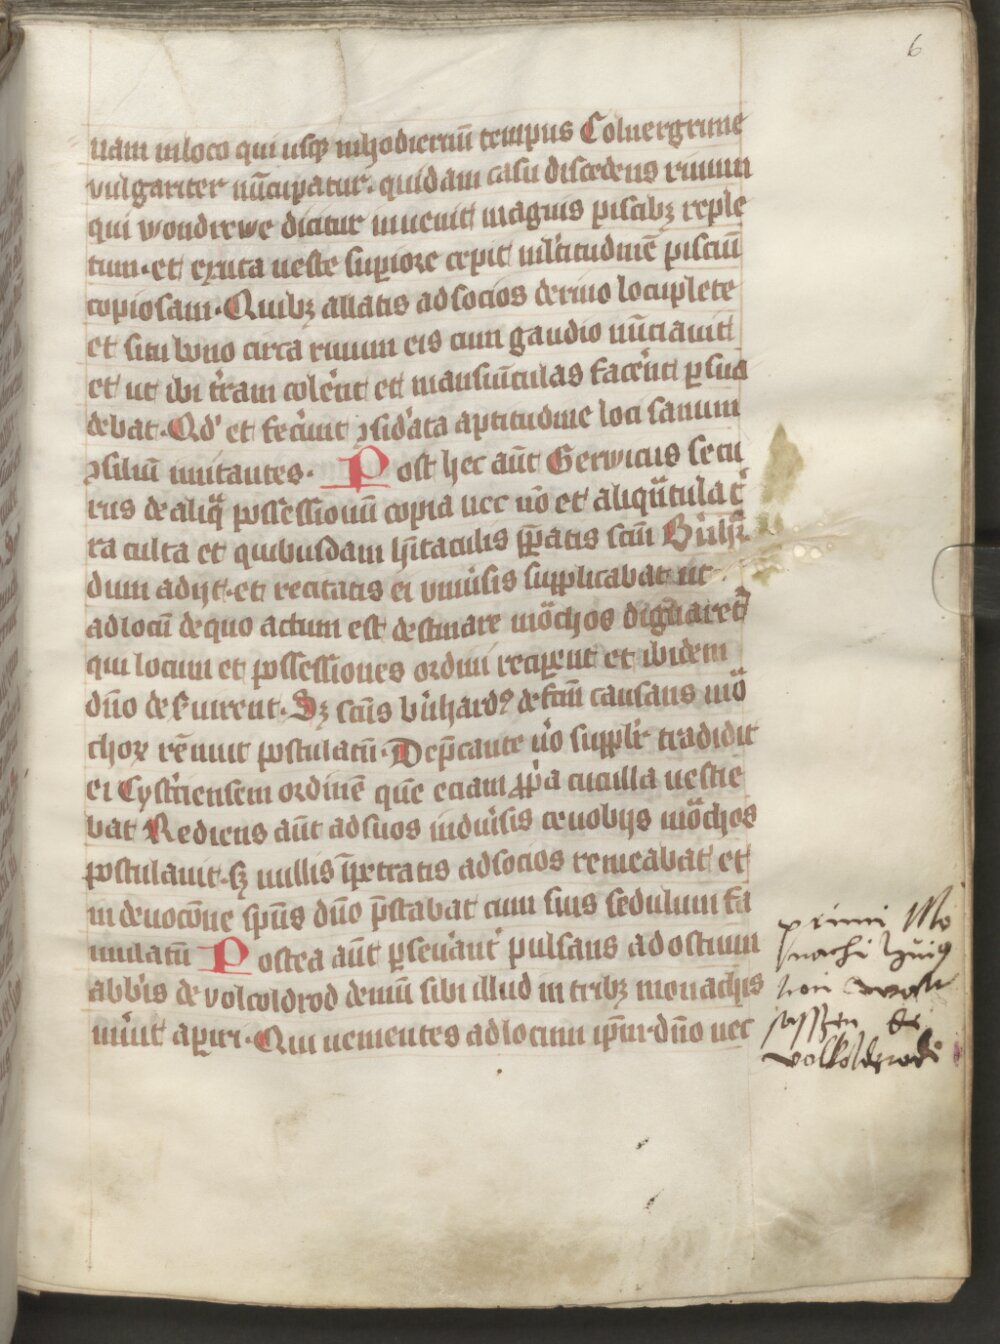 6
nam in loco qui usqꝫ in hodiernū tempus Coluergrune
vulgariter nūcupatur. quidam casu discedens riuum
qui wondrewe dicitur inuenit magnis piscibꝫ reple
tum. et exuta ueste supiore cepit mltitudinē pisciū
copiosam. Quibꝫ allatis ad socios deriuo locuplete
et situ bono circa riuum eis cum gaudio nūciauit
et ut ibi tr̄am colēnt et mansiūculas facēnt psua
debat. Qd' et fecūnt ꝯsid'ata aptitudine loci sanum
ꝯsiliū imitantes. Post hec aūt Gerwicus secu
rus de aliq̈ possessionū copia nec nō et aliq̈ntula t̄
ra culta et quibusdam hītaculis ꝑatis scūm
dum adijt. et recitatis ei vniūsis supplicabat ut
ad locū de quo actum est destinare mo̊chos dignaret̄
qui locum et possessiones ordini recipent et ibidem
dn̄o deſuirent. Sꝫ scūs būhardꝰ defcūm causans mo̊
choꝝ rēnuit postulatū. Dep̄cante ūo supplr̄ tradidit
ei Cystr̄iensem ordinē quē eciam ꝓp̄a cuculla uestie
bat Rediens aūt ad suos in diūsis cenobijs mo̊chos
postulauit. sꝫ nullis īpetratis ad socios remeabat et
in deuocōne sp̄us dn̄o p̄stabat cum suis sedulum fa
mulatū Postea aūt pseūant̄ pulsans ad ostium
abb̄is de volcoldrod demū sibi illud in tribꝫ monachis
mūit apiri. Qui uenientes ad locum ip̄m. dn̄o nec
primi Mo
nachi
walt
sassen de
volkolderode